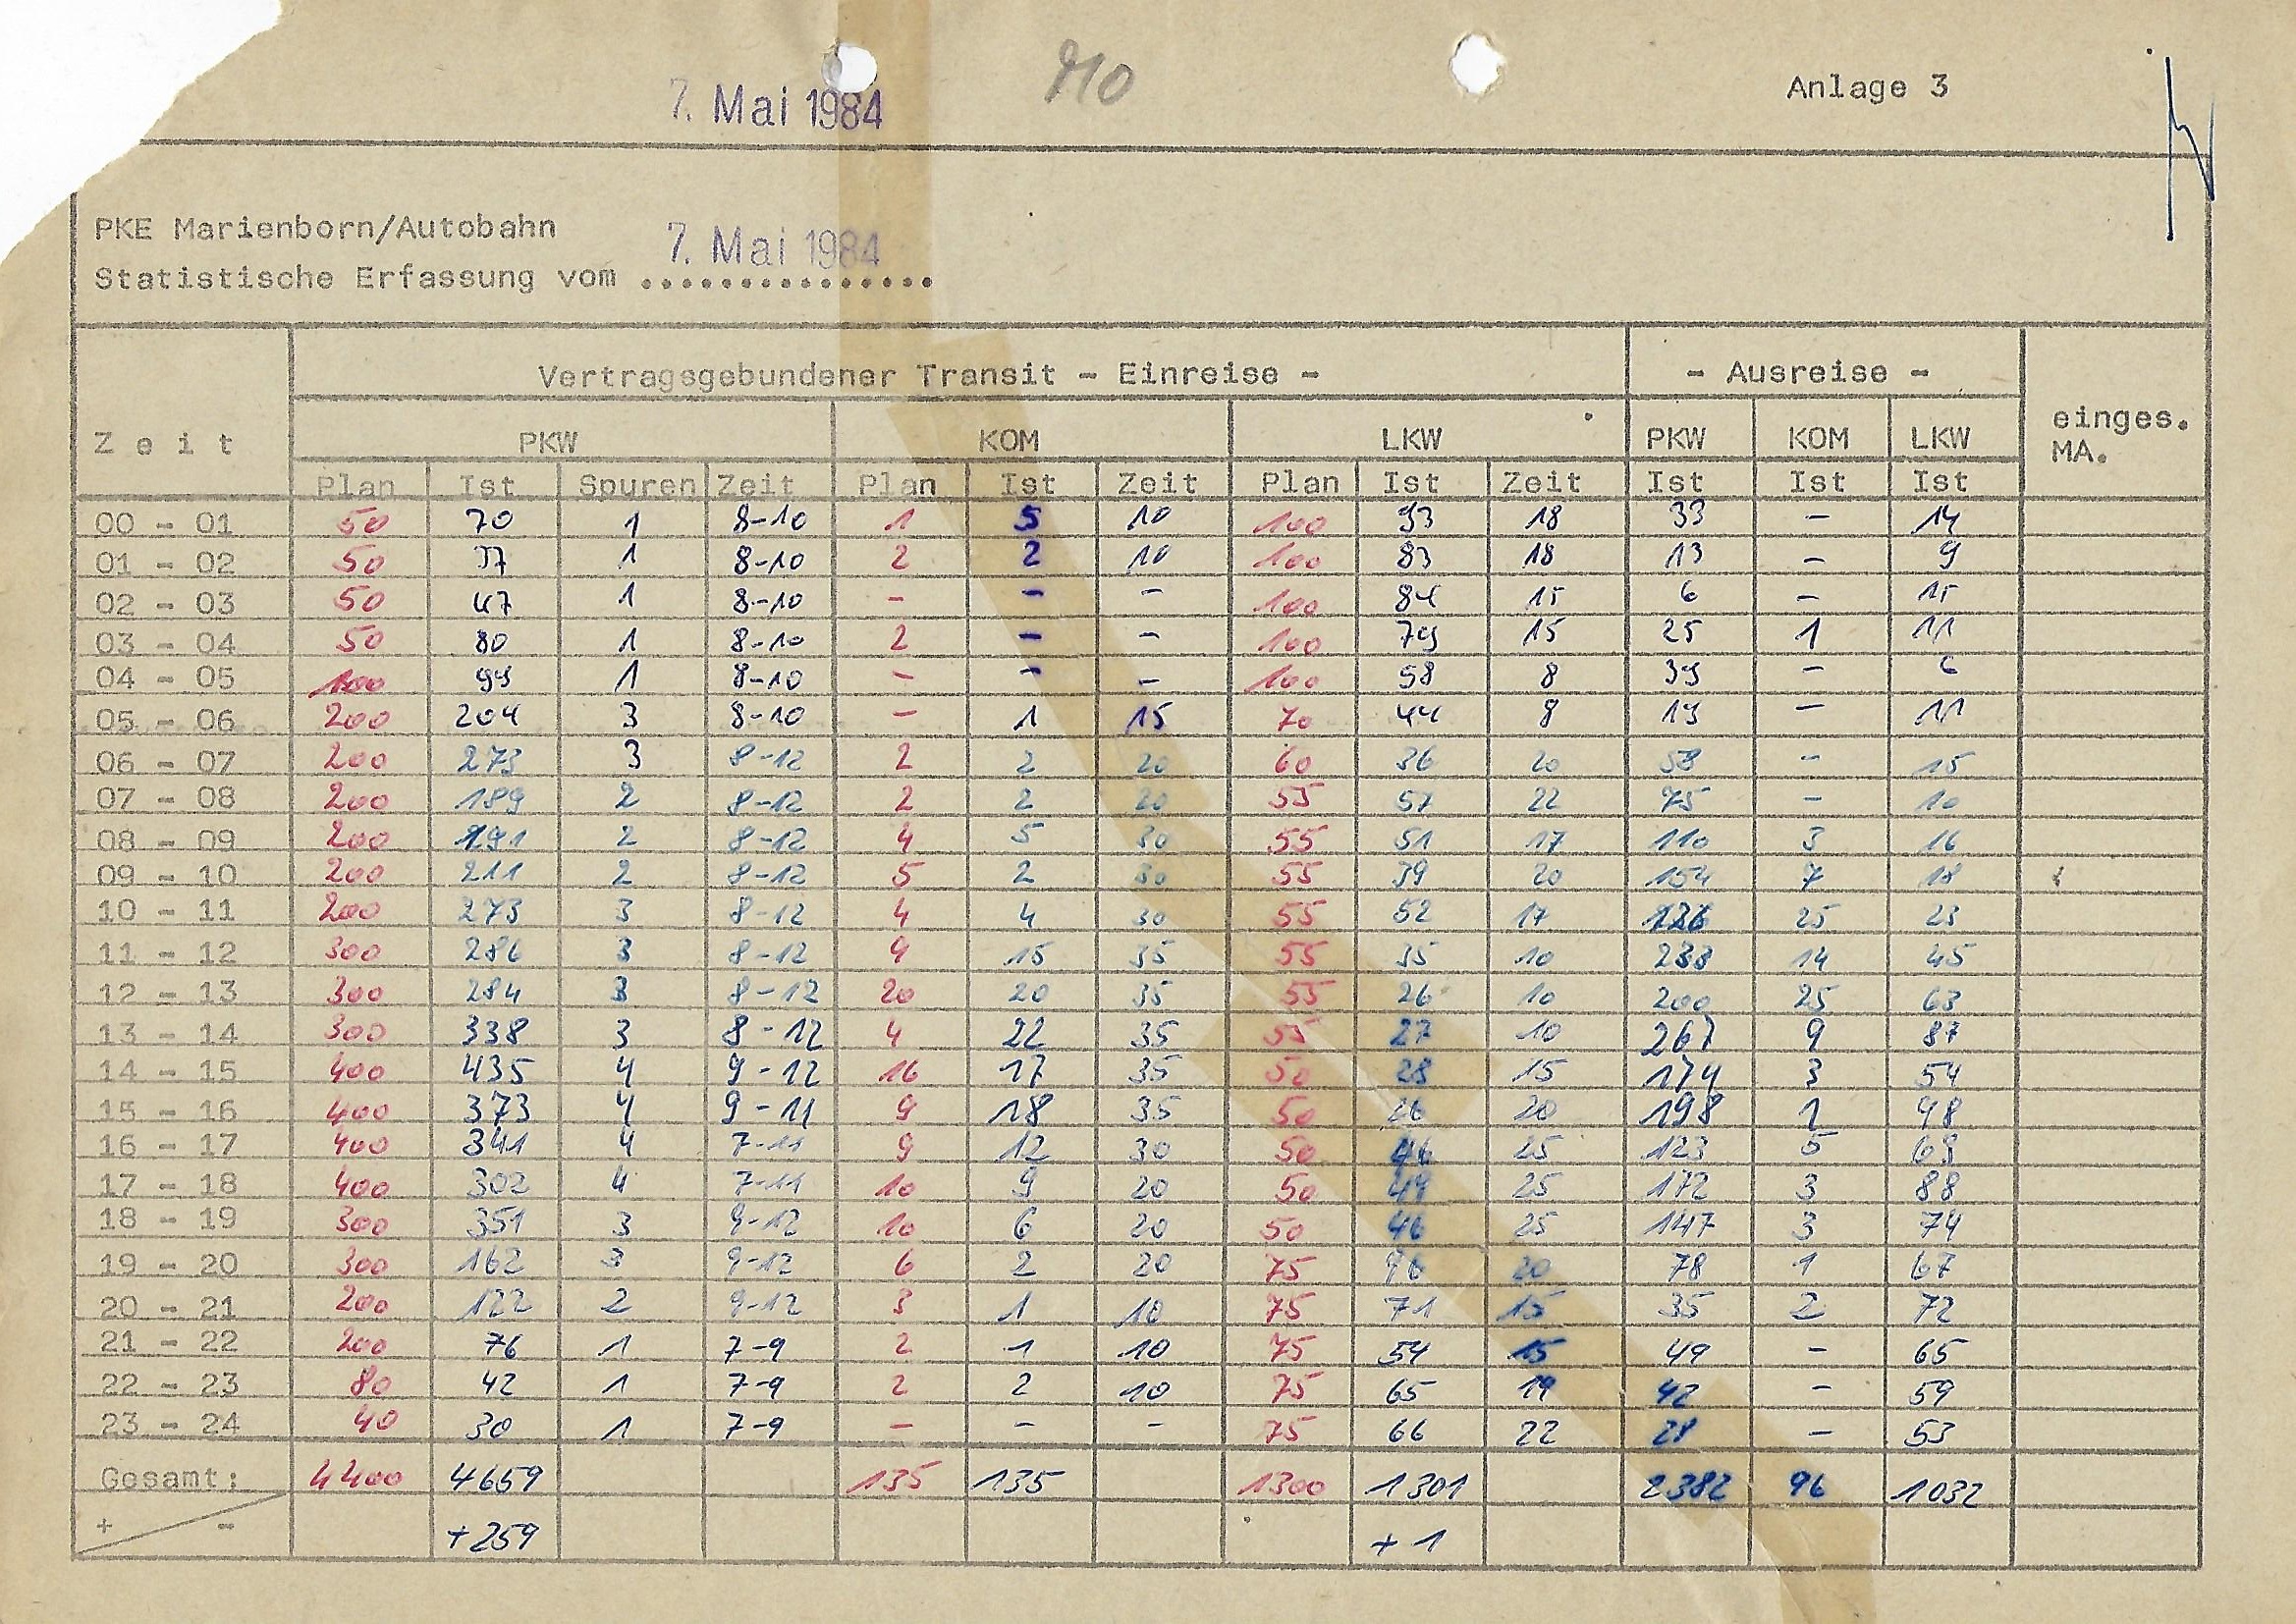 7. Mai 1984 Anlage 3
PKE Marienborn/Autobahn
7. Mai 1984
Statistische Erfassung vom ...............
Vertragsgebundener Transit - Einreise - - Ausreise -
Z e i t PKW KOM LKW PKW KOM LKW einges. MA.
Plan Ist Spuren Zeit Plan Ist Zeit Plan Ist Zeit Ist Ist Ist
00 - 01 50 70 1 8-10 1 5 10 100 93 18 33 - 14
01 - 02 50 37 1 8-10 2 2 10 100 83 18 13 - 9
02 - 03 50 47 1 8-10 - - - 100 84 15 6 - 15
03 - 04 50 80 1 8-10 2 - - 100 79 15 25 1 11
04 - 05 100 99 1 8-10 - - - 100 58 8 39 - 6
05 - 06 200 204 3 8-10 - 1 15 70 44 8 19 - 11
06 - 07 200 273 3 8-12 2 2 20 60 36 20 58 - 15
07 - 08 200 189 2 8-12 2 2 20 55 57 22 75 - 10
08 - 09 200 8-12 4 5 30 55 51 17 110 3 16
09 - 10 200 211 2 8-12 5 2 30 55 39 20 154 7 18
10 - 11 200 273 3 8-12 4 4 30 55 52 17 126 25 23
11 - 12 300 286 3 8-12 9 15 35 55 35 10 233 14 45
12 - 13 300 284 3 8-12 20 20 35 55 26 10 200 25 63
13 - 14 300 338 3 8-12 4 22 35 55 27 10 267 9 87
14 - 15 400 435 4 9-12 16 17 35 50 28 15 174 3 54
15 - 16 400 373 4 9-11 9 18 35 50 26 20 198 1 48
16 - 17 400 341 4 7-11 9 12 30 50 46 25 123 5 69
17 - 18 400 302 4 7-11 10 9 20 50 49 25 172 3 88
18 - 19 300 351 3 9-12 10 6 20 50 46 25 147 3 74
19 - 20 300 162 3 9-12 6 2 20 75 96 20 78 1 67
20 - 21 200 122 2 9-12 3 1 10 75 71 15 35 2 72
21 - 22 200 76 1 7-9 2 1 10 75 54 15 49 - 65
22 - 23 80 42 1 7-9 2 2 10 75 65 19 42 - 59
23 - 24 40 30 1 7-9 - - - 75 66 22 28 - 53
Gesamt: 4400 4659 135 135 1300 1301 2382 96 1032
+ - +259 +1